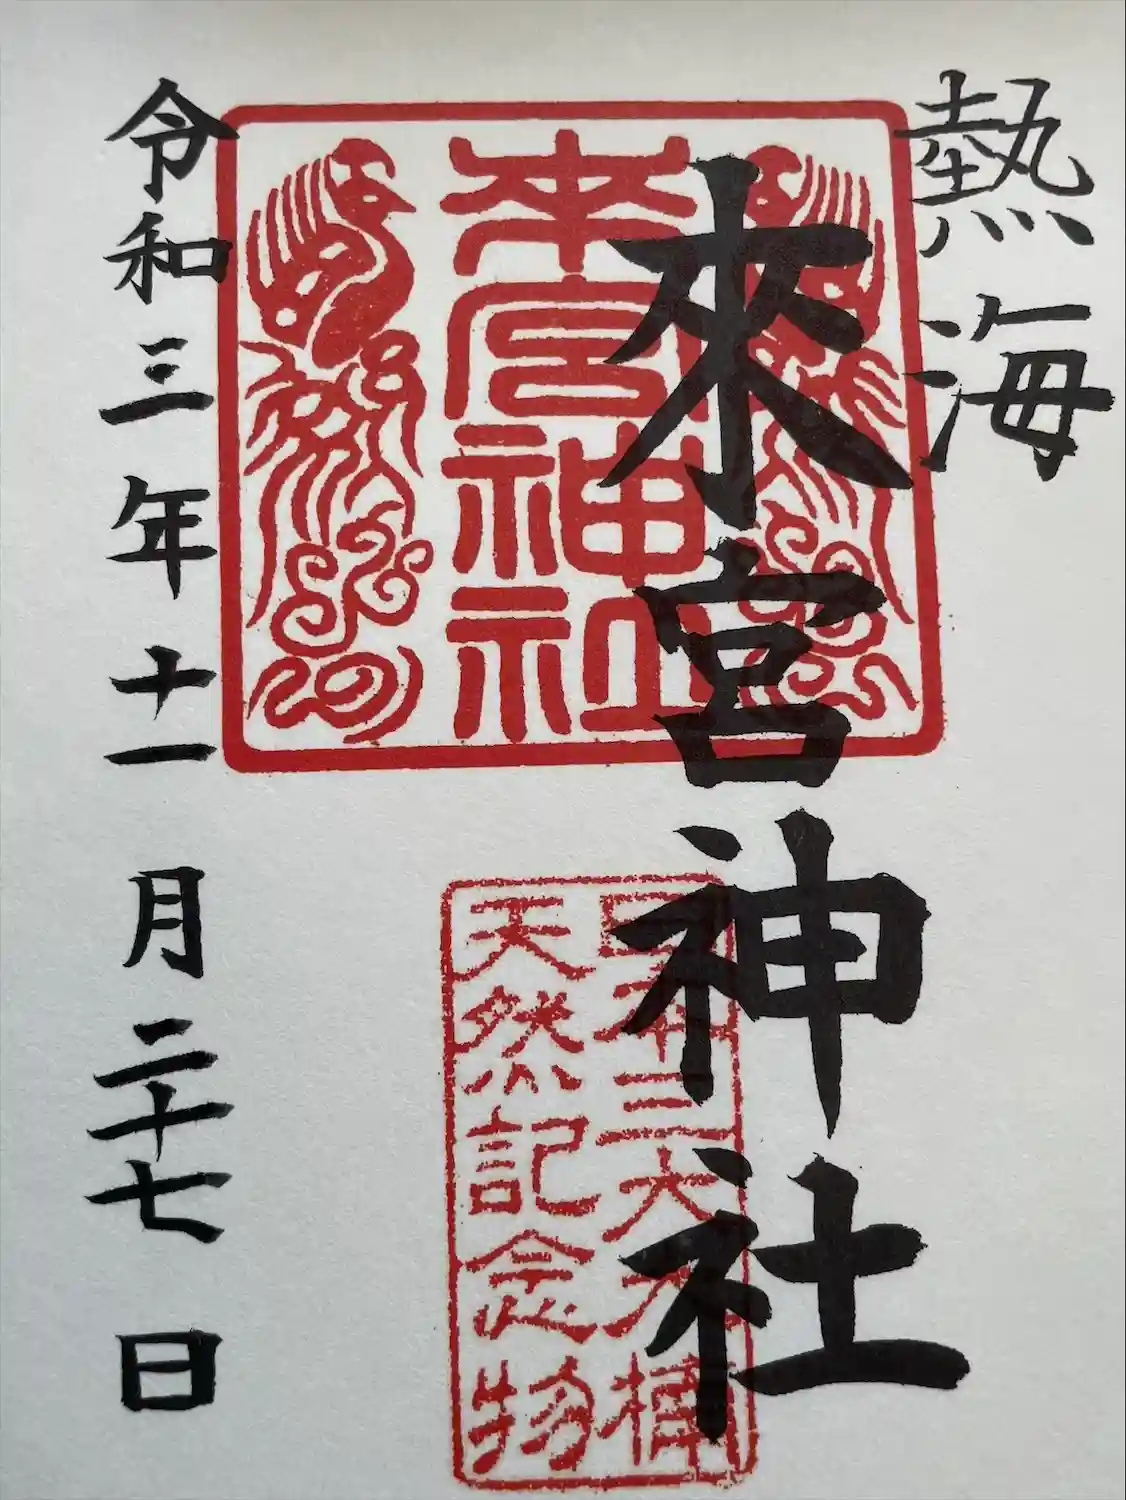 熱海
來宮神社
來宮神社
日本三大大楠
天然記念物
令和三年十一月二十七日